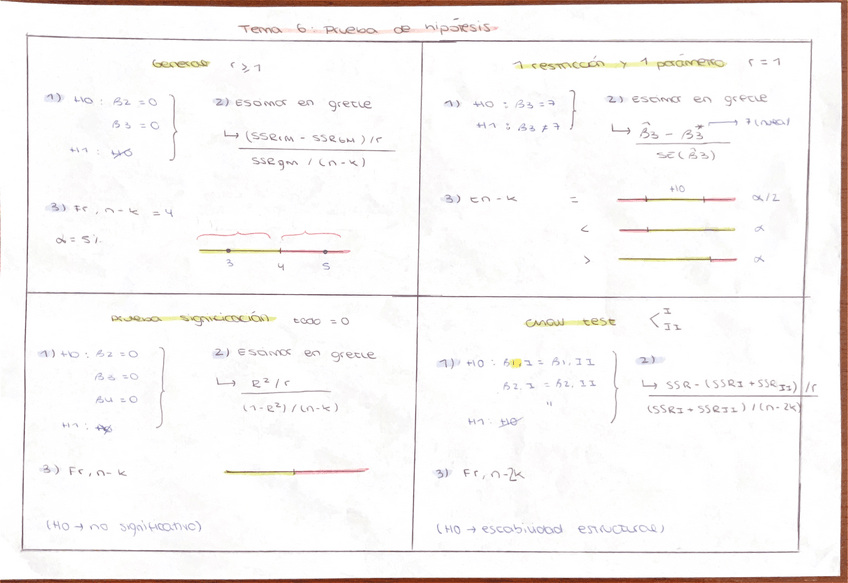 Tema 6: Prueba de hipótesis
General r ≥ 1
1) H0 : β2 = 0
β3 = 0
H1 : H0
2) Estimar en gretl
↳ (SSRrM − SSRgM) / r
SSRgM / (n-k)
3) Fr, n-k = 4
α = 5%
3 4 5
1 restricción y 1 parámetro r = 1
1) H0 : β3 = 7
H1 : β3 ≠ 7
2) Estimar en gretl
↳ β̂3 − β3* → 7 (nula)
SE(β̂3)
3) tn-k
= H0 α/2
< α
> α
Prueba significación todo = 0
1) H0 : β2 = 0
β3 = 0
β4 = 0
H1 : H0
2) Estimar en gretl
↳ R² / r
(1-R²) / (n-k)
3) Fr, n-k
(H0 → no significativo)
Chow test < I
II
1) H0 : β1, I = β1, II
β2, I = β2, II
"
H1 : H0
2)
↳ SSR − (SSRI + SSRII) / r
(SSRI + SSRII) / (n-2k)
3) Fr, n-2k
(H0 → estabilidad estructural)